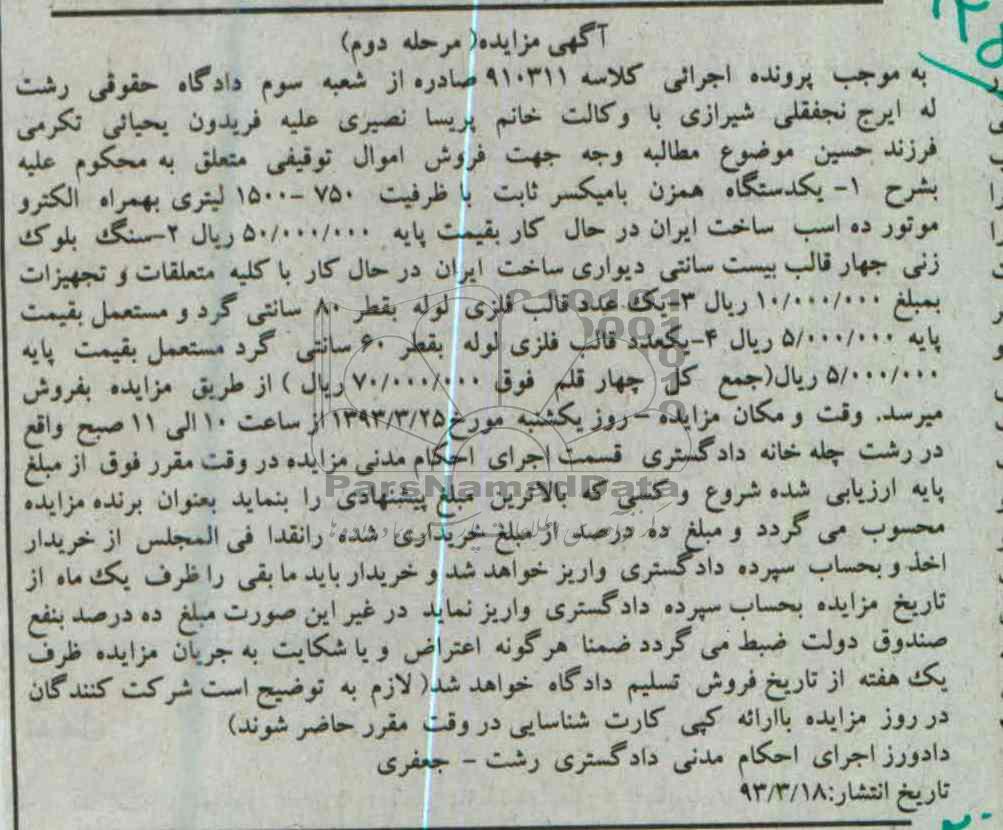 آگهی مزایده( مرحله دوم)
به موجب پرونده اجرائی کلاسه ۹۱۰۳۱۱ صادره از شعبه سوم دادگاه حقوقی رشت
له ایرج نجفقلی شیرازی با وکالت خانم پریسا نصیری علیه فریدون یحیائی تکرمی
فرزند حسین موضوع مطالبه وجه جهت فروش اموال توقیفی متعلق به محکوم علیه
بشرح ۱- یکدستگاه همزن بامیکسر ثابت با ظرفیت ۷۵۰ -۱۵۰۰ لیتری بهمراه الکترو
موتور ده اسب ساخت ایران در حال کار بقیمت پایه ۵۰/۰۰۰/۰۰۰ ریال ۲-سنگ بلوک
زنی چهار قالب بیست سانتی دیواری ساخت ایران در حال کار با کلیه متعلقات و تجهیزات
بمبلغ ۱۰/۰۰۰/۰۰۰ ریال ۳-یک عدد قالب فلزی لوله بقطر ۸۰ سانتی گرد و مستعمل بقیمت
پایه ۵/۰۰۰/۰۰۰ ریال ۴-یکعدد قالب فلزی لوله بقطر ۶۰ سانتی گرد مستعمل بقیمت پایه
۵/۰۰۰/۰۰۰ ریال(جمع کل چهار قلم فوق ۷۰/۰۰۰/۰۰۰ ریال ) از طریق مزایده بفروش
میرسد. وقت و مکان مزایده – روز یکشنبه مورخ ۱۳۹۳/۳/۲۵ از ساعت ۱۰ الی ۱۱ صبح واقع
در رشت چله خانه دادگستری قسمت اجرای احکام مدنی مزایده در وقت مقرر فوق از مبلغ
پایه ارزیابی شده شروع و کسی که بالاترین مبلغ پیشنهادی را بنماید بعنوان برنده مزایده
محسوب می گردد و مبلغ ده درصد از مبلغ خریداری شده رانقدا فی المجلس از خریدار
اخذ و بحساب سپرده دادگستری واریز خواهد شد و خریدار باید ما بقی را ظرف یک ماه از
تاریخ مزایده بحساب سپرده دادگستری واریز نماید در غیر این صورت مبلغ ده درصد بنفع
صندوق دولت ضبط می گردد ضمنا هرگونه اعتراض و یا شکایت به جریان مزایده ظرف
یک هفته از تاریخ فروش تسلیم دادگاه خواهد شد( لازم به توضیح است شرکت کنندگان
در روز مزایده باارائه کپی کارت شناسایی در وقت مقرر حاضر شوند)
دادورز اجرای احکام مدنی دادگستری رشت - جعفری
تاریخ انتشار:۹۳/۳/۱۸
ParsNamadData